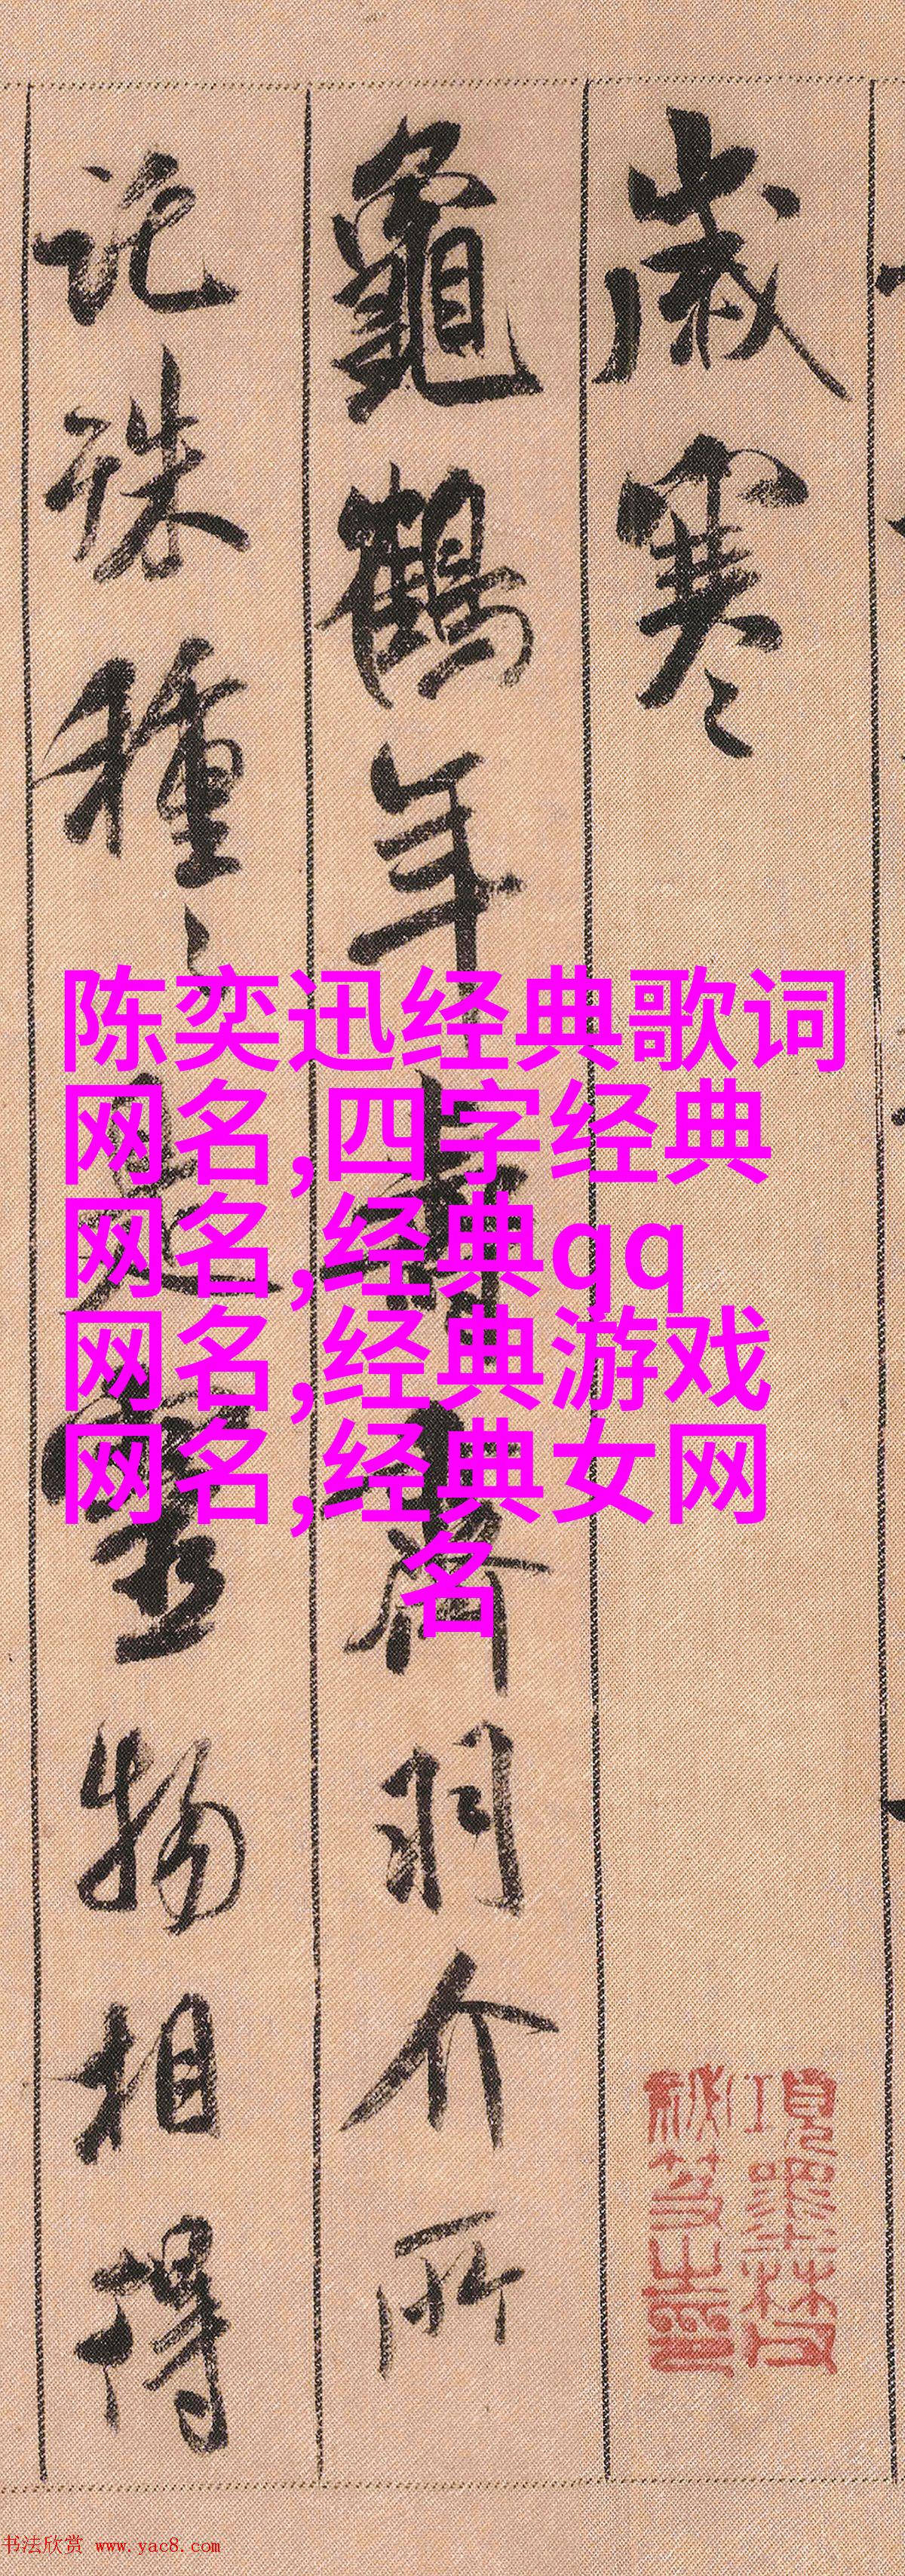 歲寒
龜鶴年壽齊羽介所
託殊種々是靈物相得
陈奕迅经典歌词
网名,四字经典
网名,经典qq
网名,经典游戏
网名,经典女网
名
項墨林父
秘笈之印
书法欣赏 www.yac8.com